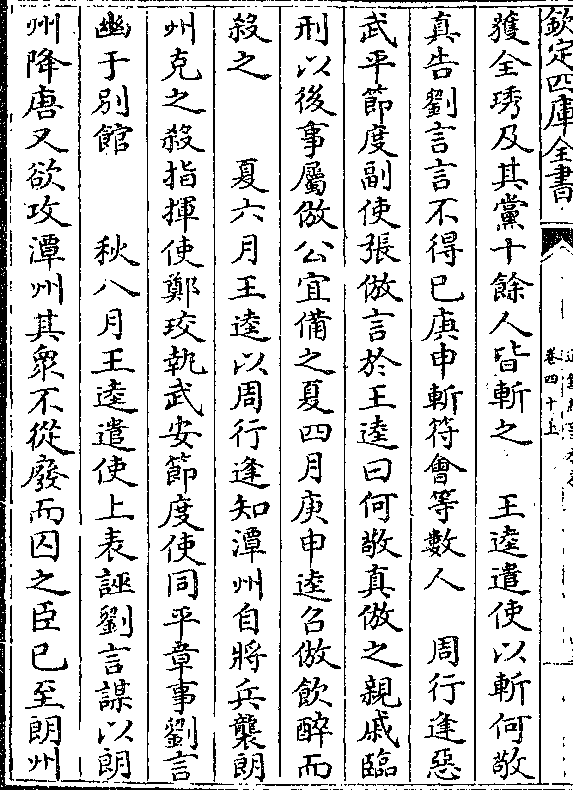 欽定四庫全書
卷四十五
獲全琇及其黨十餘人皆斬之　王逵遣使以斬何敬
真告劉言言不得已庚申斬符會等數人　周行逢惡
武平節度副使張倣言於王逵曰何敬真倣之親戚臨
刑以後事屬倣公宜備之夏四月庚申逵召倣飲醉而
殺之　夏六月王逵以周行逢知潭州自將兵襲朗
州克之殺指揮使鄭珓執武安節度使同平章事劉言
幽于別館　秋八月王逵遣使上表誣劉言謀以朗
州降唐又欲攻潭州其衆不從廢而囚之臣已至朗州